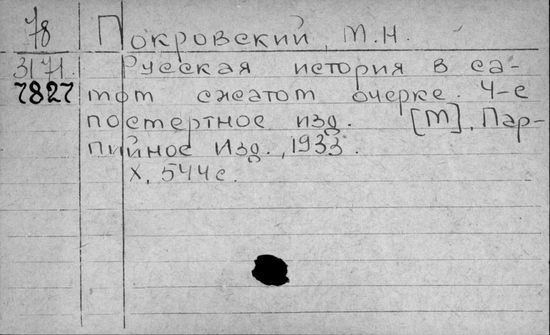 78 Покровский, М.Н.
3171. Русская история в са-
7827 мом сжатом очерке. 4-е
посмертное изд. [М], Пар-
тийное изд., 1933.
X, 544 с.